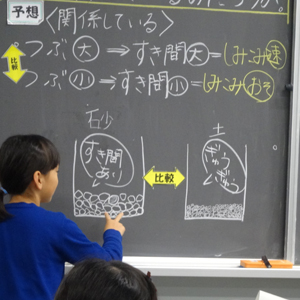 予想
〈関係している〉
つぶ大⇒すき間大＝しみこみ速
比較
つぶ小⇒すき間小＝しみこみおそ
石少
すき間あり
比較
土
ぎゅうぎゅう